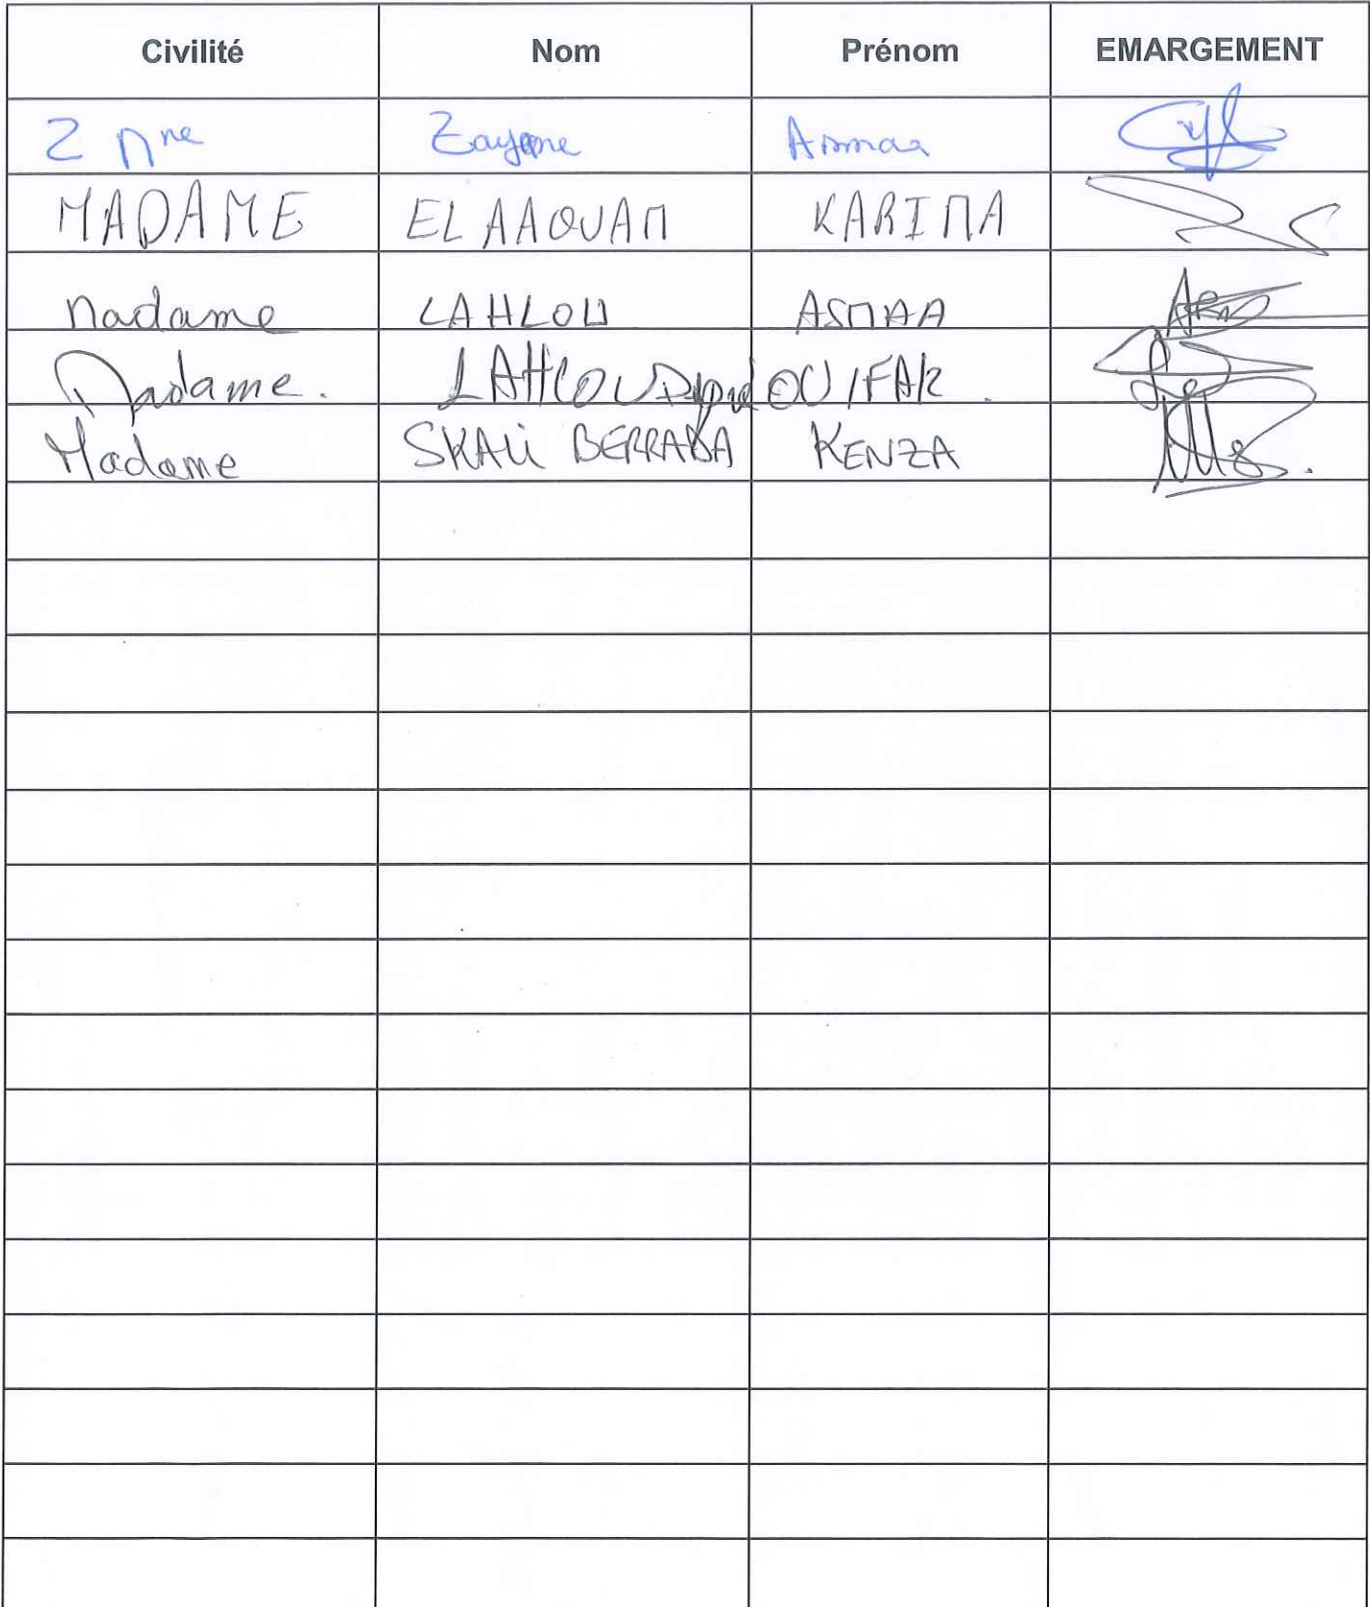 Civilité Nom Prénom EMARGEMENT
2 Mme Zayane Asmaa
MADAME EL AAOUAM KARIMA
Madame LAHLOU ASMAA
Madame. LAHLOU OUIFAK.
Madame SKALi BERRADA KENZA